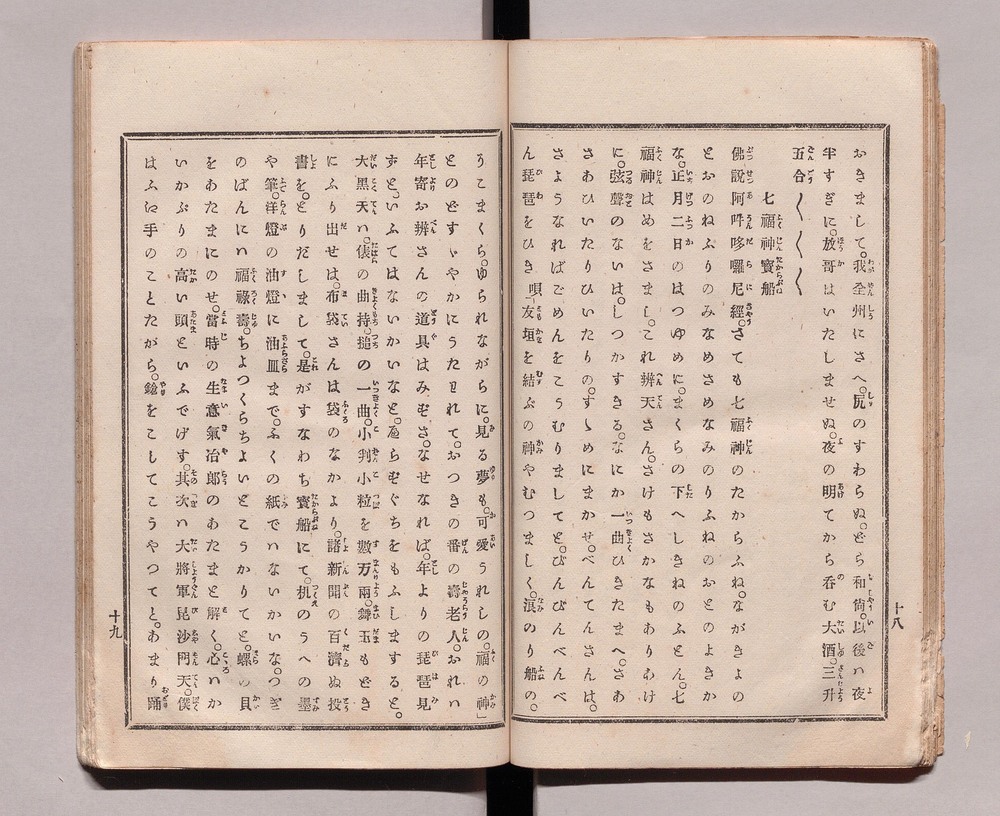 おきまして。我全州にさへ。尻のすわらぬ。どら和尚。以後ハ夜
半すぎに。放哥はいたしませぬ。夜の明てから呑む大酒。三升
五合〳〵〳〵
七福神寳船
佛說阿吽哆囉尼經。さても七福神のたからふね。ながきよの
とおのねふりのみなめさめなみのりふねのおとのよきか
な。正月二日のはつゆめに。まくらの下へしきねのふとん。七
福神はめをさまし。これ辨天さん。さけもさかなもありあけ
に。弦聲のないは。しつかすきる。なにか一曲ひきたまへ。さあ
さあひいたりひいたりの。すゝめにまかせ。べんてんさんは。
さようなればごめんをこうむりましてと。びんびんべんべ
ん琵琶をひき 唄「友垣を結ぶの神やむつましく。浪のり船の。
十八
うこまくら。ゆられながらに。見る夢も。可愛うれしの。福の神」
とのどすゝやかにうたはれて。おつきの番の壽老人。おれハ
年寄お辨さんの道具はみずさ。なせなれば。年よりの琵琶見
ずと。いふてはないかいなと。あらずぐちをもふしますると。
大黒天ハ。俵の曲持。搥の一曲。小判小粒を數万兩。舞玉もどき
にふり出せは。布袋さんは袋のなかより。諸新聞の百濟ぬ投
書を。とりだしまして。是がすなわち寳船にて。机のうへの墨
や筆。洋燈の油燈に油皿まで。ふくの紙でハないかいな。つぎ
のばんにハ福祿壽。ちよつくらちよいとこうかりてと。螺の貝
をあたまにのせ。當時の生意氣冶郎のあたまと解く。心ハか
いかぶりの高い頭といふでげす。其次ハ大將軍毘沙門天。僕
はふね手のことたがら。鎗をこしてこうやつてと。あまり踊
十九